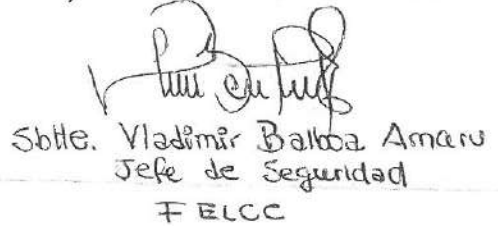 Sbtte. Vladimir Balboa Amaru
Jefe de Seguridad
FELCC